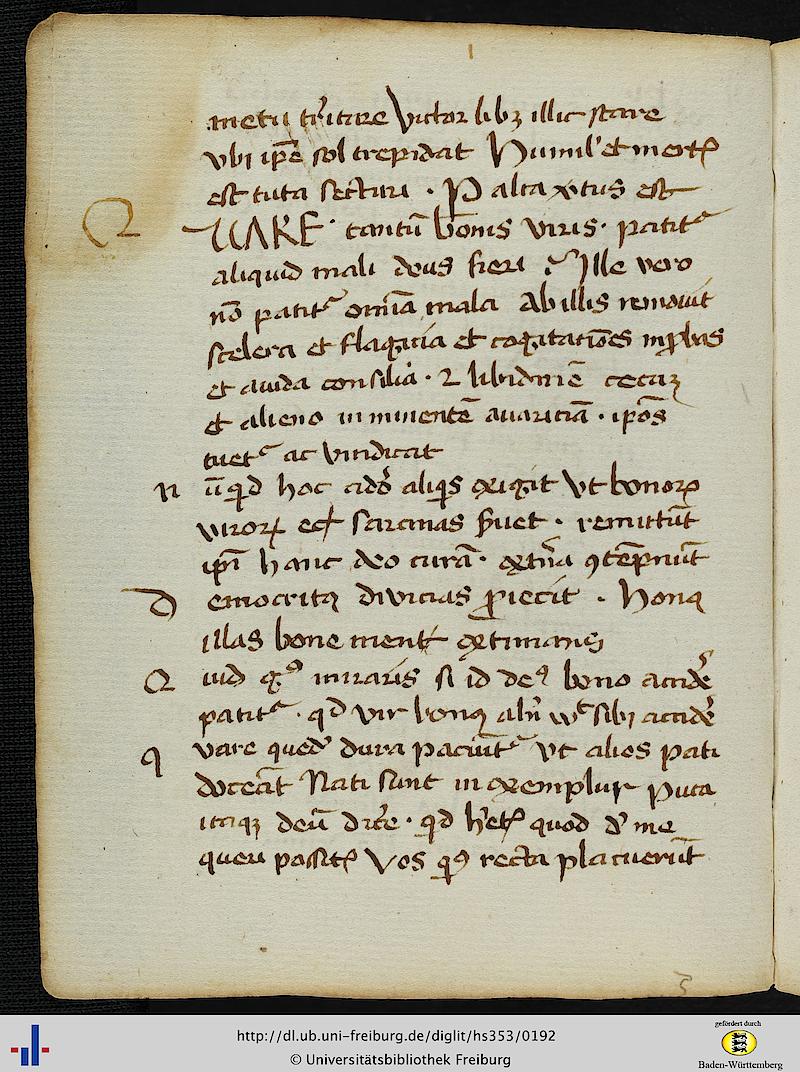 metu t'ritare Victor libꝫ illic stare
vbi ip̄e sol trepidat Humil' et inertꝭ
est tuta sectari · P alta x̄tus est
Q UARE · tantū bonis viris · patit᷒
aliquid mali deus fieri Ille vero
nō patit᷒ omīa mala Ab illis remouit
scelera et flagicia et cogitatiōes inꝓbas
et auida consilia · ⁊ libidinē cecaꝫ
et alieno inminentē auariciā · ip̄os
tuet᷒ ac vindicat
n ūqid hoc adeo aliqis exigit Vt bonorꝝ
virorꝝ ecā sarcinas seruet · remittūt
ip̄i hanc deo curā · ext'na ꝯtēpnūt
D emocritꝰ diuicias ꝓiecit · honꝰ
illas bone mentꝭ extimans
Q uid gͦ miraris si id deꝰ bono accidē
patit᷒ · qd vir bonꝰ aliqn̄ vt sibi accidē
q vare quedā dura paciūt᷒ vt alios pati
doceāt Nati sunt in exemplum puta
itaqꝫ deū dicē · qd hētꝭ quod de me
queri possitꝭ Vos qiꝰ recta placuerūt
http://dl.ub.uni-freiburg.de/diglit/hs353/0192
© Universitätsbibliothek Freiburg
gefördert durch
Baden-Württemberg